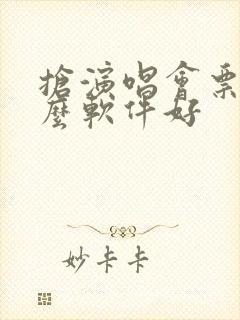 搶演唱會票
麼軟件好
妙卡卡